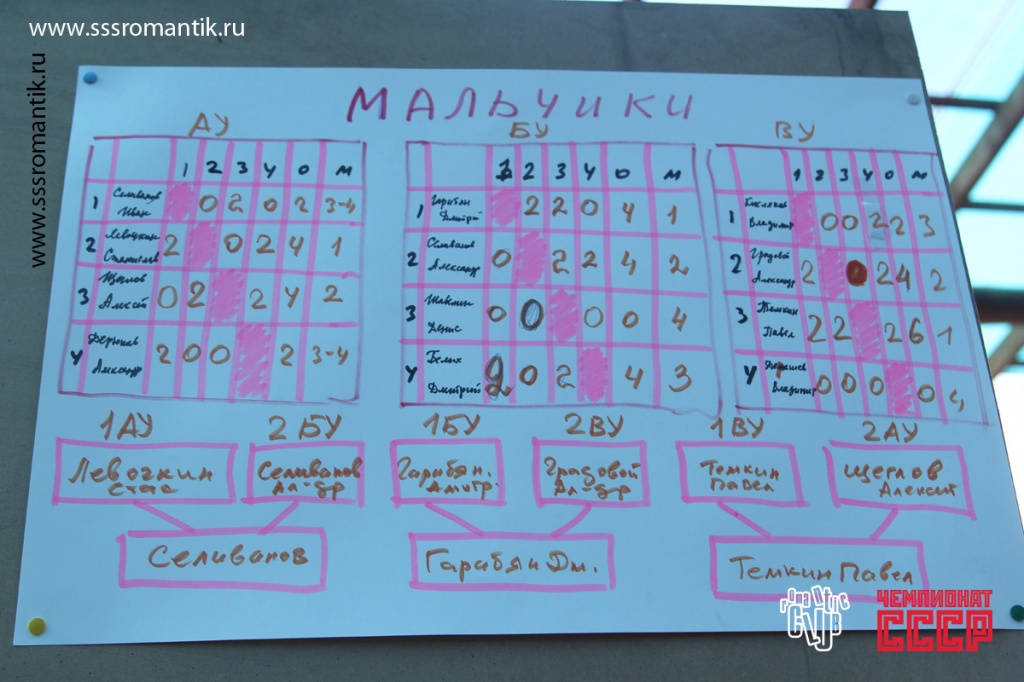 www.sssromantik.ru
www.sssromantik.ru
МАЛЬЧИКИ
АУ
1 2 3 4 0 М
1 Селиванов Иван 0 2 0 2 3-4
2 Левочкин Станислав 2 0 2 4 1
3 Щеглов Алексей 0 2 2 4 2
4 Александр 2 0 0 2 3-4
БУ
1 2 3 4 0 М
1 Гарибян Дмитрий 2 2 0 4 1
2 Селиванов Александр 0 2 2 4 2
3 Денис 0 0 0 0 4
4 Белых Дмитрий 2 0 2 4 3
ВУ
1 2 3 4 0 М
1 Владимир 0 0 2 2 3
2 Градовой Александр 2 0 2 4 2
3 Темкин Павел 2 2 2 6 1
4 Владимир 0 0 0 0 4
1АУ 2БУ 1БУ 2ВУ 1ВУ 2АУ
Левочкин Стас
Селиванов Ал-др
Гарибян Дмитр.
Градовой Ал-др
Темкин Павел
Щеглов Алексей
Селиванов
Гарибян Дм.
Темкин Павел
romantic
CLUB
ЧЕМПИОНАТ
СССР